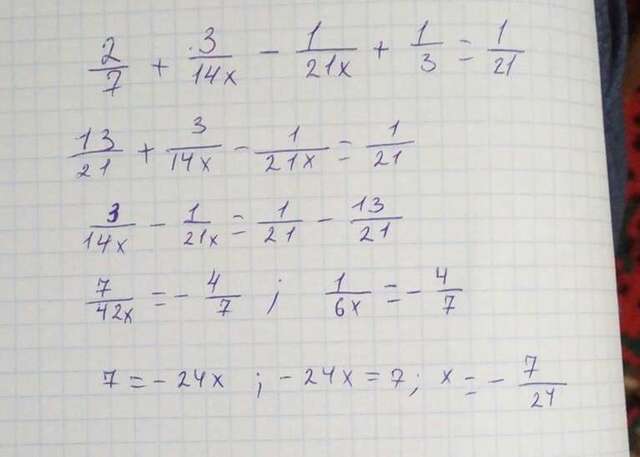 2/7 + 3/14x - 1/21x + 1/3 = 1/21
13/21 + 3/14x - 1/21x = 1/21
3/14x - 1/21x = 1/21 - 13/21
7/42x = - 4/7 ; 1/6x = - 4/7
7 = - 24x ; - 24x = 7 ; x = - 7/24